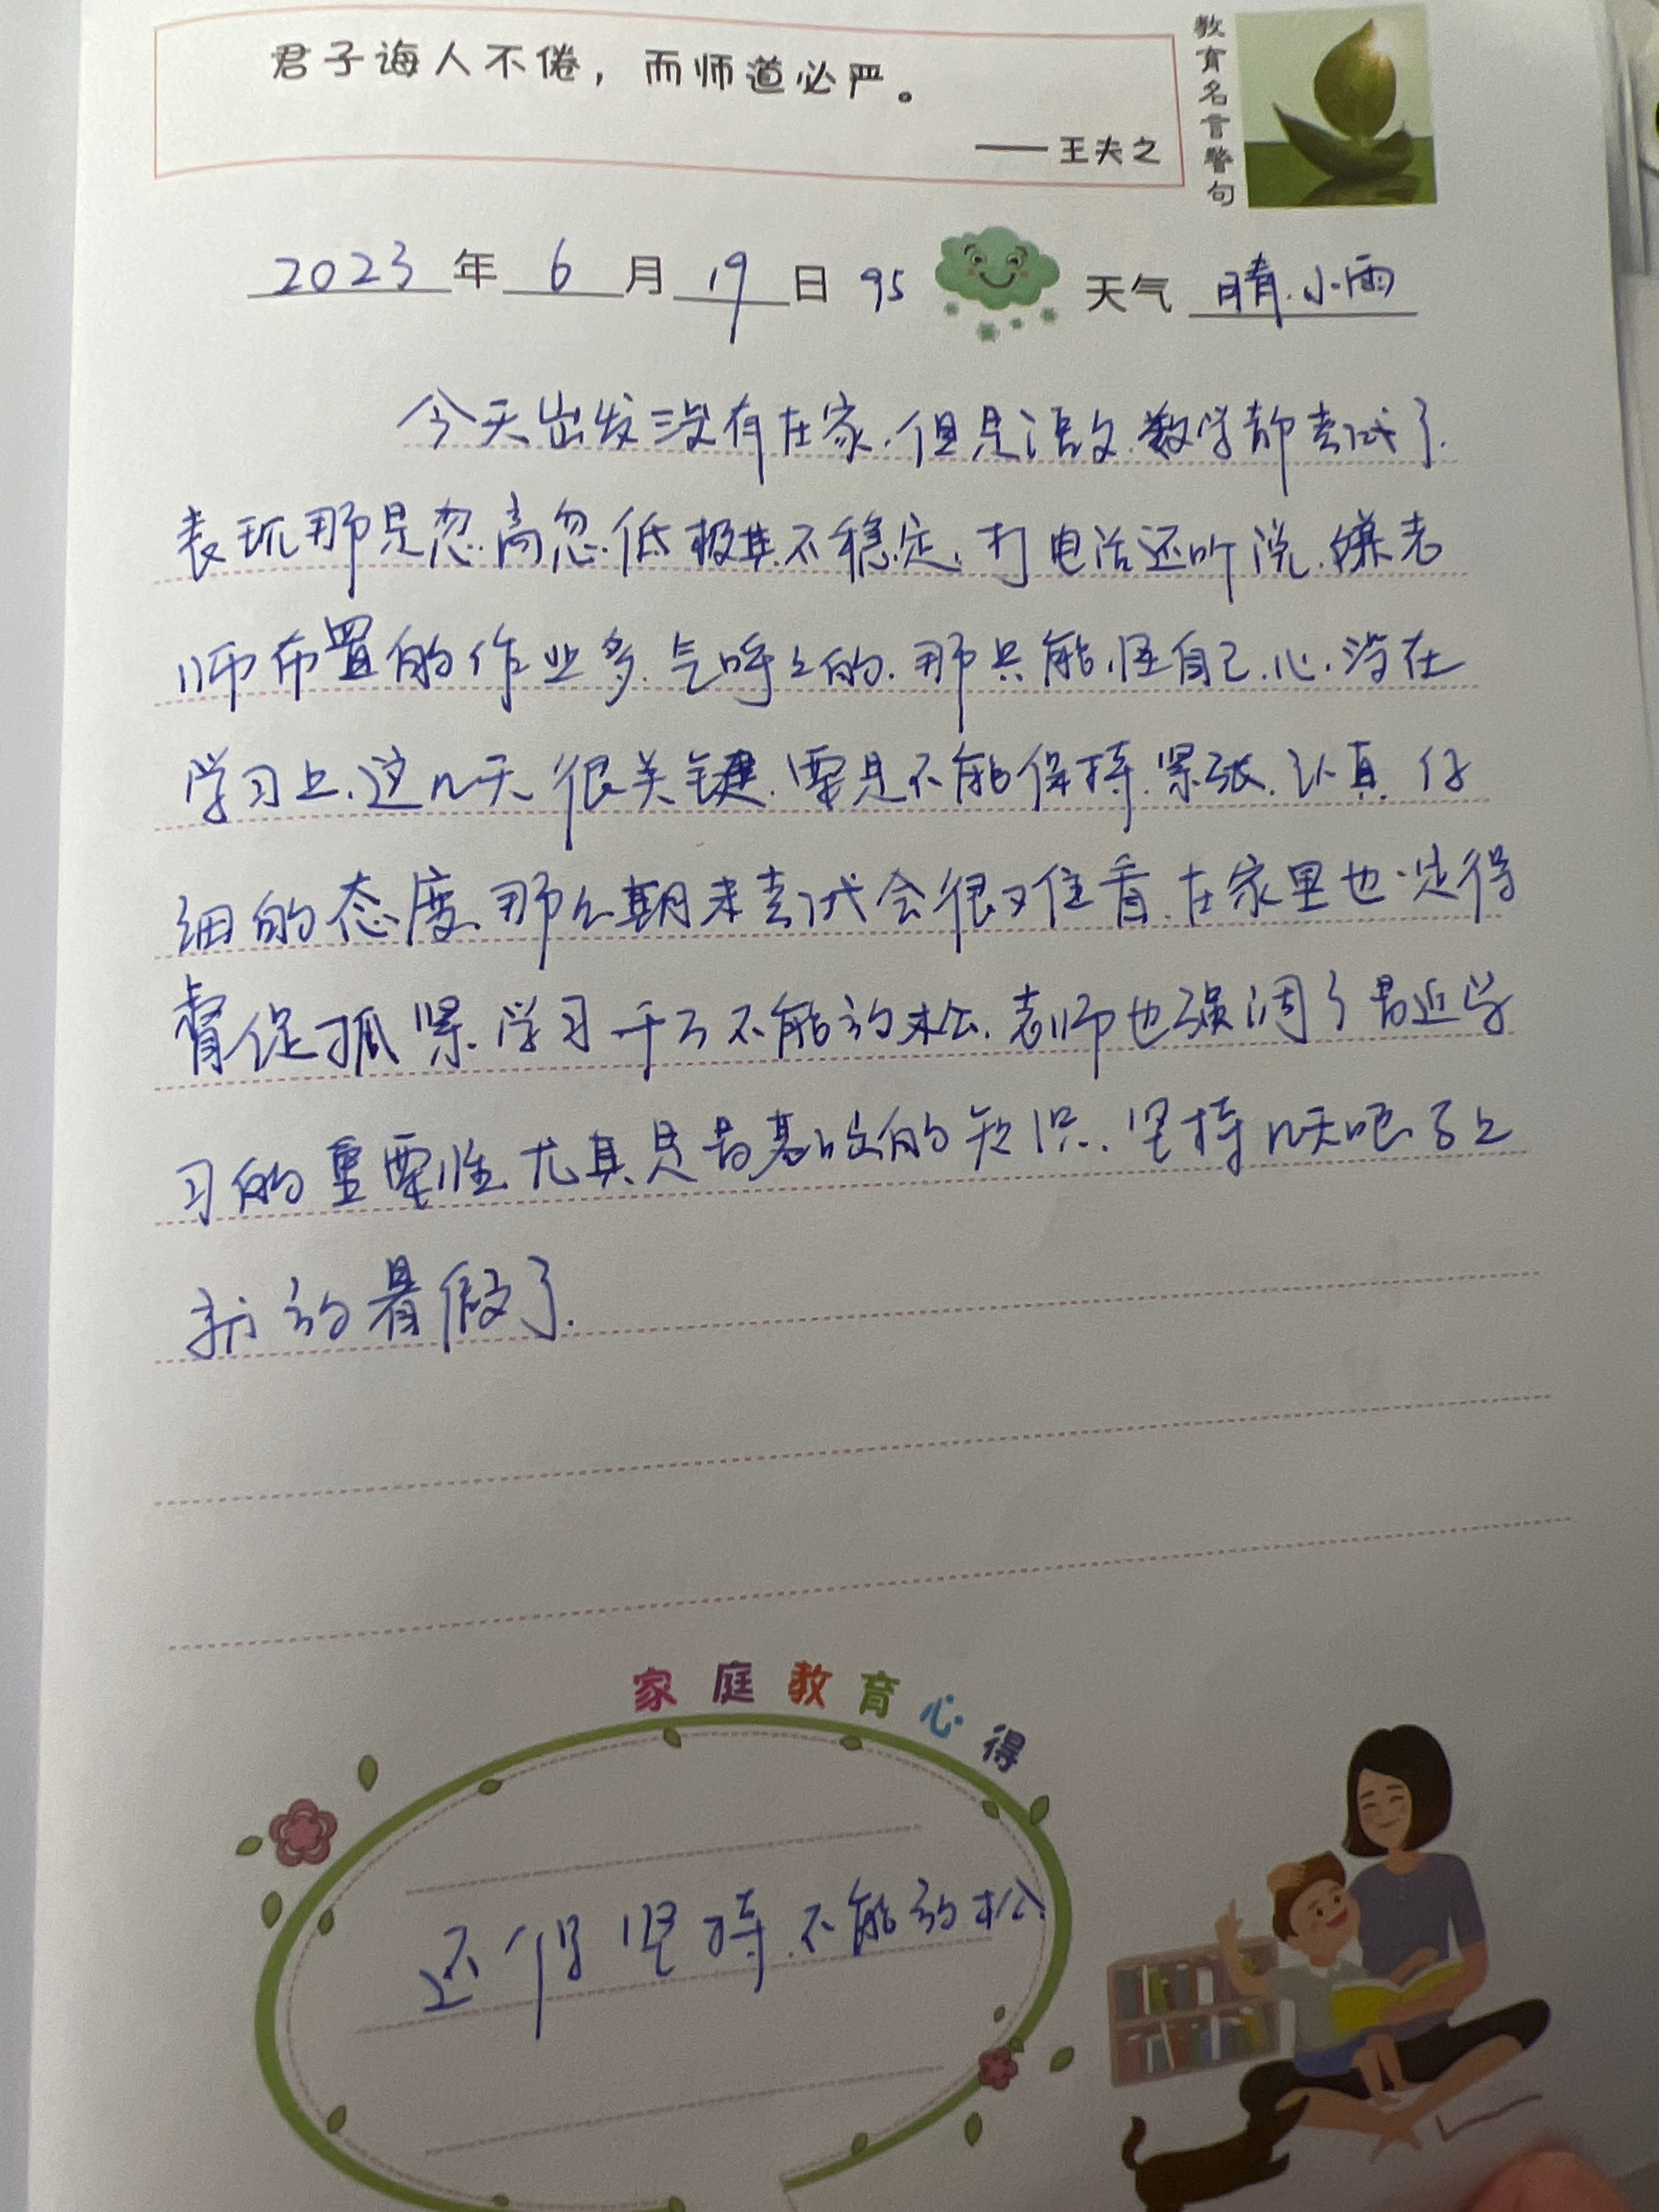 君子诲人不倦，而师道必严。
——王夫之
教育名言警句
2023年6月19日 95 天气 晴.小雨
今天出发没有在家.但是语文.数学都考试了.
表现那是忽高忽低极其不稳定.打电话还听说.嫌老
师布置的作业多.气呼々的.那只能怪自己.心.没在
学习上.这几天很关键.要是不能保持.紧张.认真.仔
细的态度.那么期末考试会很难看.在家里也一定得
督促抓紧.学习千万不能放松.老师也强调了最近学
习的重要性尤其是最基础的知识.坚持几天吧
放暑假了.
家庭教育心得
还得坚持.不能放松